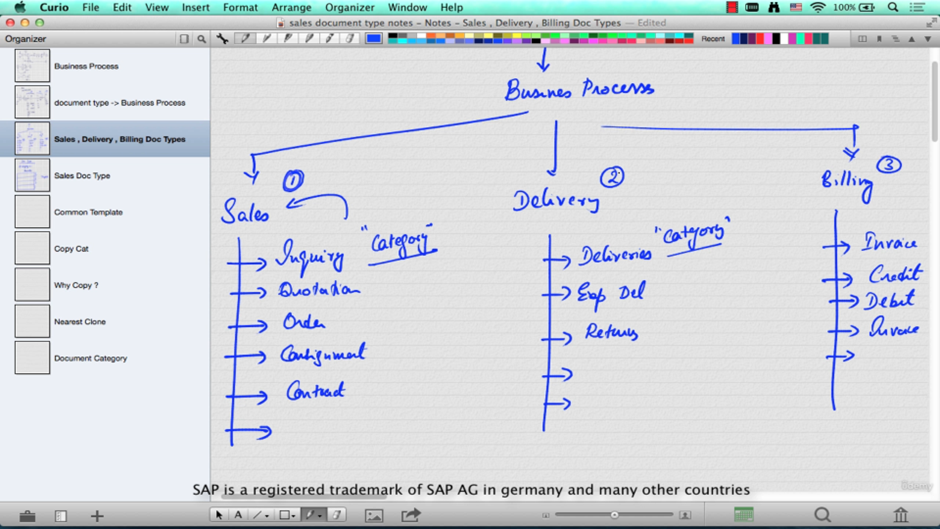 Curio File Edit View Insert Format Arrange Organizer Window Help 100%
sales document type notes - Notes - Sales , Delivery , Billing Doc Types — Edited
Organizer
Recent
Business Process
document type -> Business Process
Sales , Delivery , Billing Doc Types
Sales Doc Type
Common Template
Copy Cat
Why Copy ?
Nearest Clone
Document Category
Busines Processs
Sales 1
Delivery 2
Billing 3
Inquiry "Category"
Quotation
Order
Consignment
Contract
Deliveries "Category"
Exp Del
Returns
Invoice
Credit
Debit
Invoice
SAP is a registered trademark of SAP AG in germany and many other countries
Udemy
A